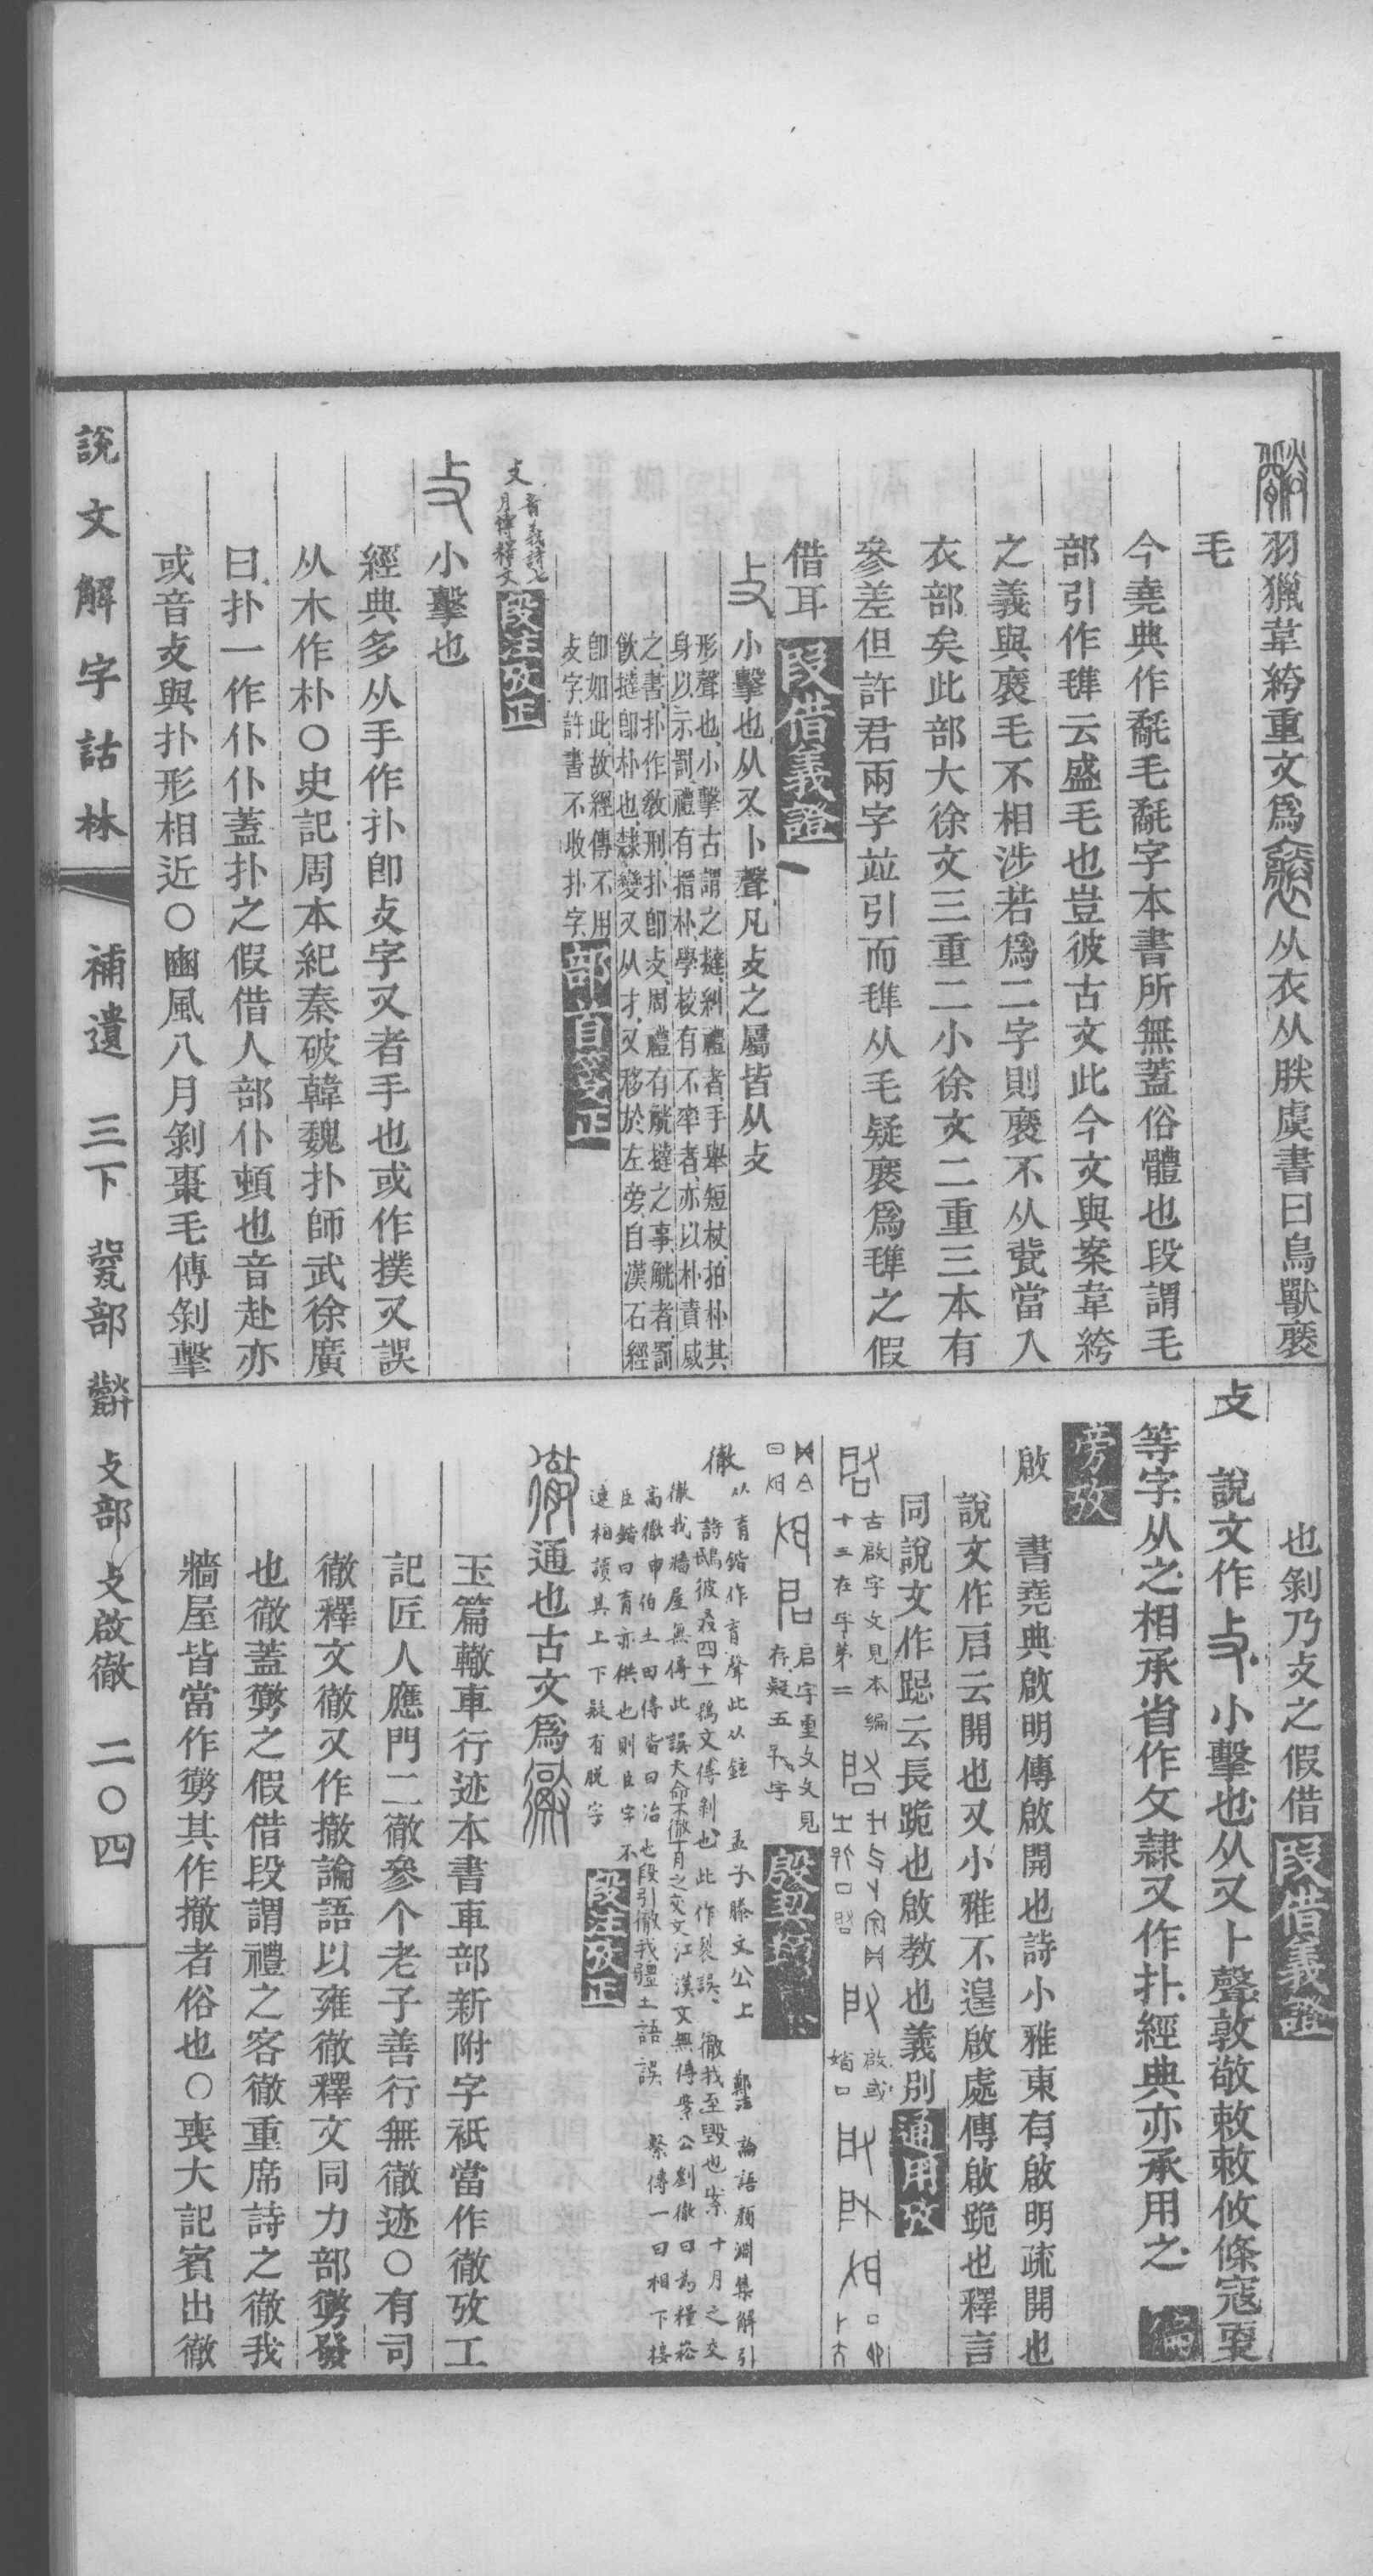 羽獵韋絝重文爲 从衣从朕虞書曰鳥獸褎
毛
今堯典作氄毛氄字本書所無蓋俗體也段謂毛
部引作䍸云盛毛也豈彼古文此今文與案韋絝
之義與褎毛不相涉若爲二字則褎不从㼱當入
衣部矣此部大徐文三重二小徐文二重三本有
參差但許君兩字竝引而䍸从毛疑褎爲䍸之假
借耳 段借義證
攴 小擊也从又卜聲凡攴之屬皆从攴
形聲也小擊古謂之撻糾禮者手舉短杖拍朴其
身以示罰禮有搢朴學校有不率者亦以朴責威
之書扑作敎刑扑卽攴周禮有觥撻之事觥者罰
飲撻卽朴也隸變又从才又移於左旁自漢石經
卽如此故經傳不用
攴字許書不收扑字 部首
攴 音義詩七
月傳釋文 段注攷正
攴 小擊也
經典多从手作扑卽攴字又者手也或作撲又誤
从木作朴〇史記周本紀秦破韓魏扑師武徐廣
曰扑一作仆仆蓋扑之假借人部仆頓也音赴亦
或音攴與扑形相近〇豳風八月剝棗毛傳剝擊
也剝乃攴之假借 段借義證
攴 說文作攴小擊也从又卜聲敦敬敕敕攸條寇更
等字从之相承省作攵隸又作扑經典亦承用之
旁攷
啟 書堯典啟明傳啟開也詩小雅東有啟明疏開也
說文作启云開也又小雅不遑啟處傳啟跪也釋言
同說文作跽云長跪也啟教也義別 通用攷
古啟字文見本編
十三在年第二
啟或
省口
启字重文文見
存疑五
徹 从育鍇作育聲此从鉉 孟子滕文公上 鄭注 論語顏淵集解引
徹我牆屋無傳此誤天命不徹十月之交文江漢文無傳 公劉徹曰爲糧
高徹申伯土田傳皆曰治也段引徹我疆土語誤 繫傳一曰相下接
臣鍇曰育亦供也則臣字不
連相讀其上下疑有脫字 段注攷正
徹 通也古文爲
玉篇轍車行迹本書車部新附字祇當作徹攷工
記匠人應門二徹參个老子善行無徹迹〇有司
徹釋文徹又作撤論語以雍徹釋文同力部勶發
也徹蓋勶之假借段謂禮之客徹重席詩之徹我
牆屋皆當作勶其作撤者俗也〇喪大記賓出徹
說文解字詁林 補遺 三下 㼱部 攴部 攴啟徹 二〇四